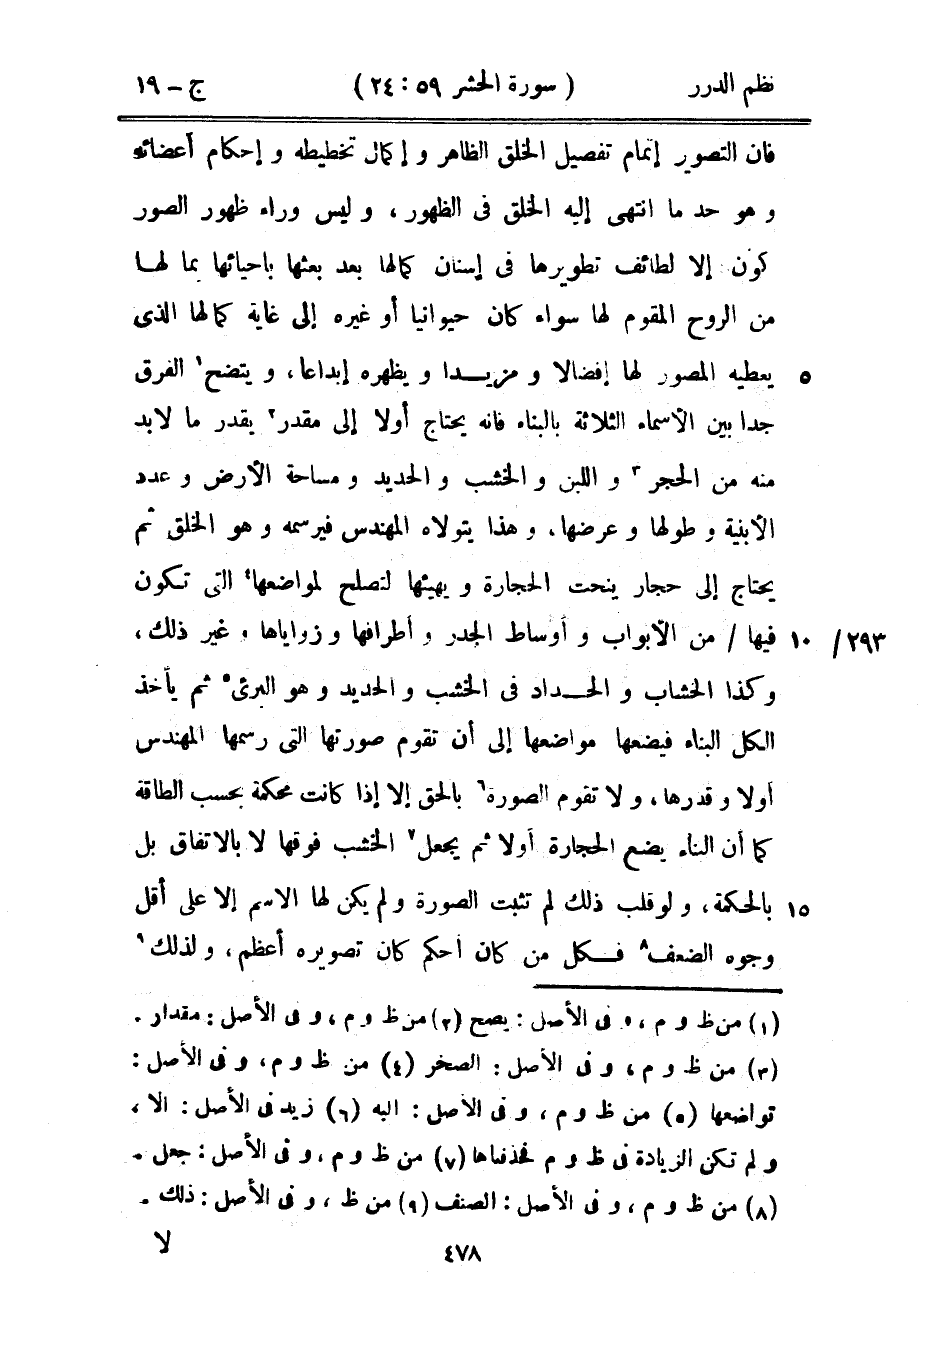 نظم الدرر ( سورة الحشر ٥٩ : ٢٤ ) ج – ١٩
فان التصور إتمام تفصيل الخلق الظاهر و إكمال تخطيطه و إحكام أعضائه
و هو حد ما انتهى إليه الخلق فى الظهور ، و ليس وراء ظهور الصور
كون إلا لطائف تطويرها فى إسنان كمالها بعد بعثها باحيائها بما لها
من الروح المقوم لها سواء كان حيوانيا أو غيره إلى غاية كمالها الذى
٥ يعطيه المصور لها إفضالا و مزيدا و يظهره إبداعا ، و يتضح١ الفرق
جدا بين الأسماء الثلاثة بالبناء فانه يحتاج أولا إلى مقدر٢ يقدر ما لابد
منه من الحجر٣ و اللبن و الخشب و الحديد و مساحة الأرض و عدد
الأبنية و طولها و عرضها ، و هذا يتولاه المهندس فيرسمه و هو الخلق ثم
يحتاج إلى حجار ينحت الحجارة و يهيئها لتصلح لمواضعها٤ التى تكون
٢٩٣/ ١٠ فيها / من الأبواب و أوساط الجدر و أطرافها و زواياها و غير ذلك ،
و كذا الخشاب و الحداد فى الخشب و الحديد و هو البرئ٥ ثم يأخذ
الكل البناء فيضعها مواضعها إلى أن تقوم صورتها التى رسمها المهندس
أولا و قدرها ، و لا تقوم الصورة٦ بالحق إلا إذا كانت محكمة بحسب الطاقة
كما أن البناء يضع الحجارة أولا ثم يجعل٧ الخشب فوقها لا بالاتفاق بل
١٥ بالحكمة ، و لو قلب ذلك لم تثبت الصورة و لم يكن لها الاسم إلا على أقل
وجوه الضعف٨ فكل من كان أحكم كان تصويره أعظم ، و لذلك٩
(١) من ظ و م ، و فى الأصل : يصح (٢) من ظ و م ، و فى الأصل : مقدار .
(٣) من ظ و م ، و فى الأصل : الصخر (٤) من ظ و م ، و فى الأصل :
تواضعها (٥) من ظ و م ، و فى الأصل : اليه (٦) زيد فى الأصل : الا ،
و لم تكن الزيادة فى ظ و م فحذفناها (٧) من ظ و م ، و فى الأصل : جعل .
(٨) من ظ و م ، و فى الأصل : الصنف (٩) من ظ ، و فى الأصل : ذلك .
٤٧٨ لا